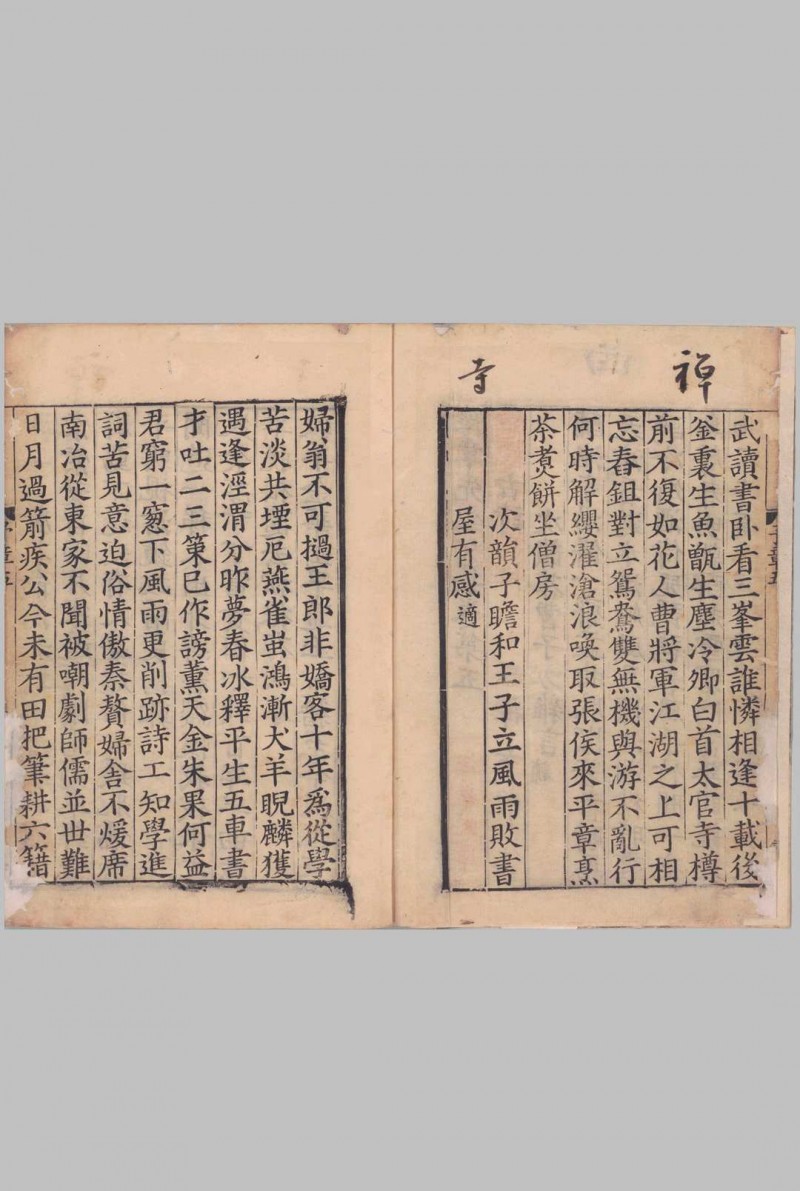 禪
寺
武讀書卧看三峯雲誰憐相逢十載後
釜裏生魚甑生塵冷卿白首太官寺樽
前不復如花人曹將軍江湖之上可相
忘舂鉏對立鴛鴦雙無機與游不亂行
何時解纓濯滄浪喚取張侯來平章烹
茶煑餅坐僧房
次韻子瞻和王子立風雨敗書
屋有感適
婦翁不可撾王郎非嬌客十年為從學
苦淡共堙厄燕雀蚩鴻漸犬羊睨麟獲
遇逢涇渭分昨夢春冰釋平生五車書
才吐二三策已作謗薰天金朱果何益
君窮一窻下風雨更削跡詩工知學進
詞苦見意迫俗情傲秦贅婦舍不煖席
南冶從東家不聞被嘲劇師儒並世難
日月過箭疾公今未有田把筆耕六籍